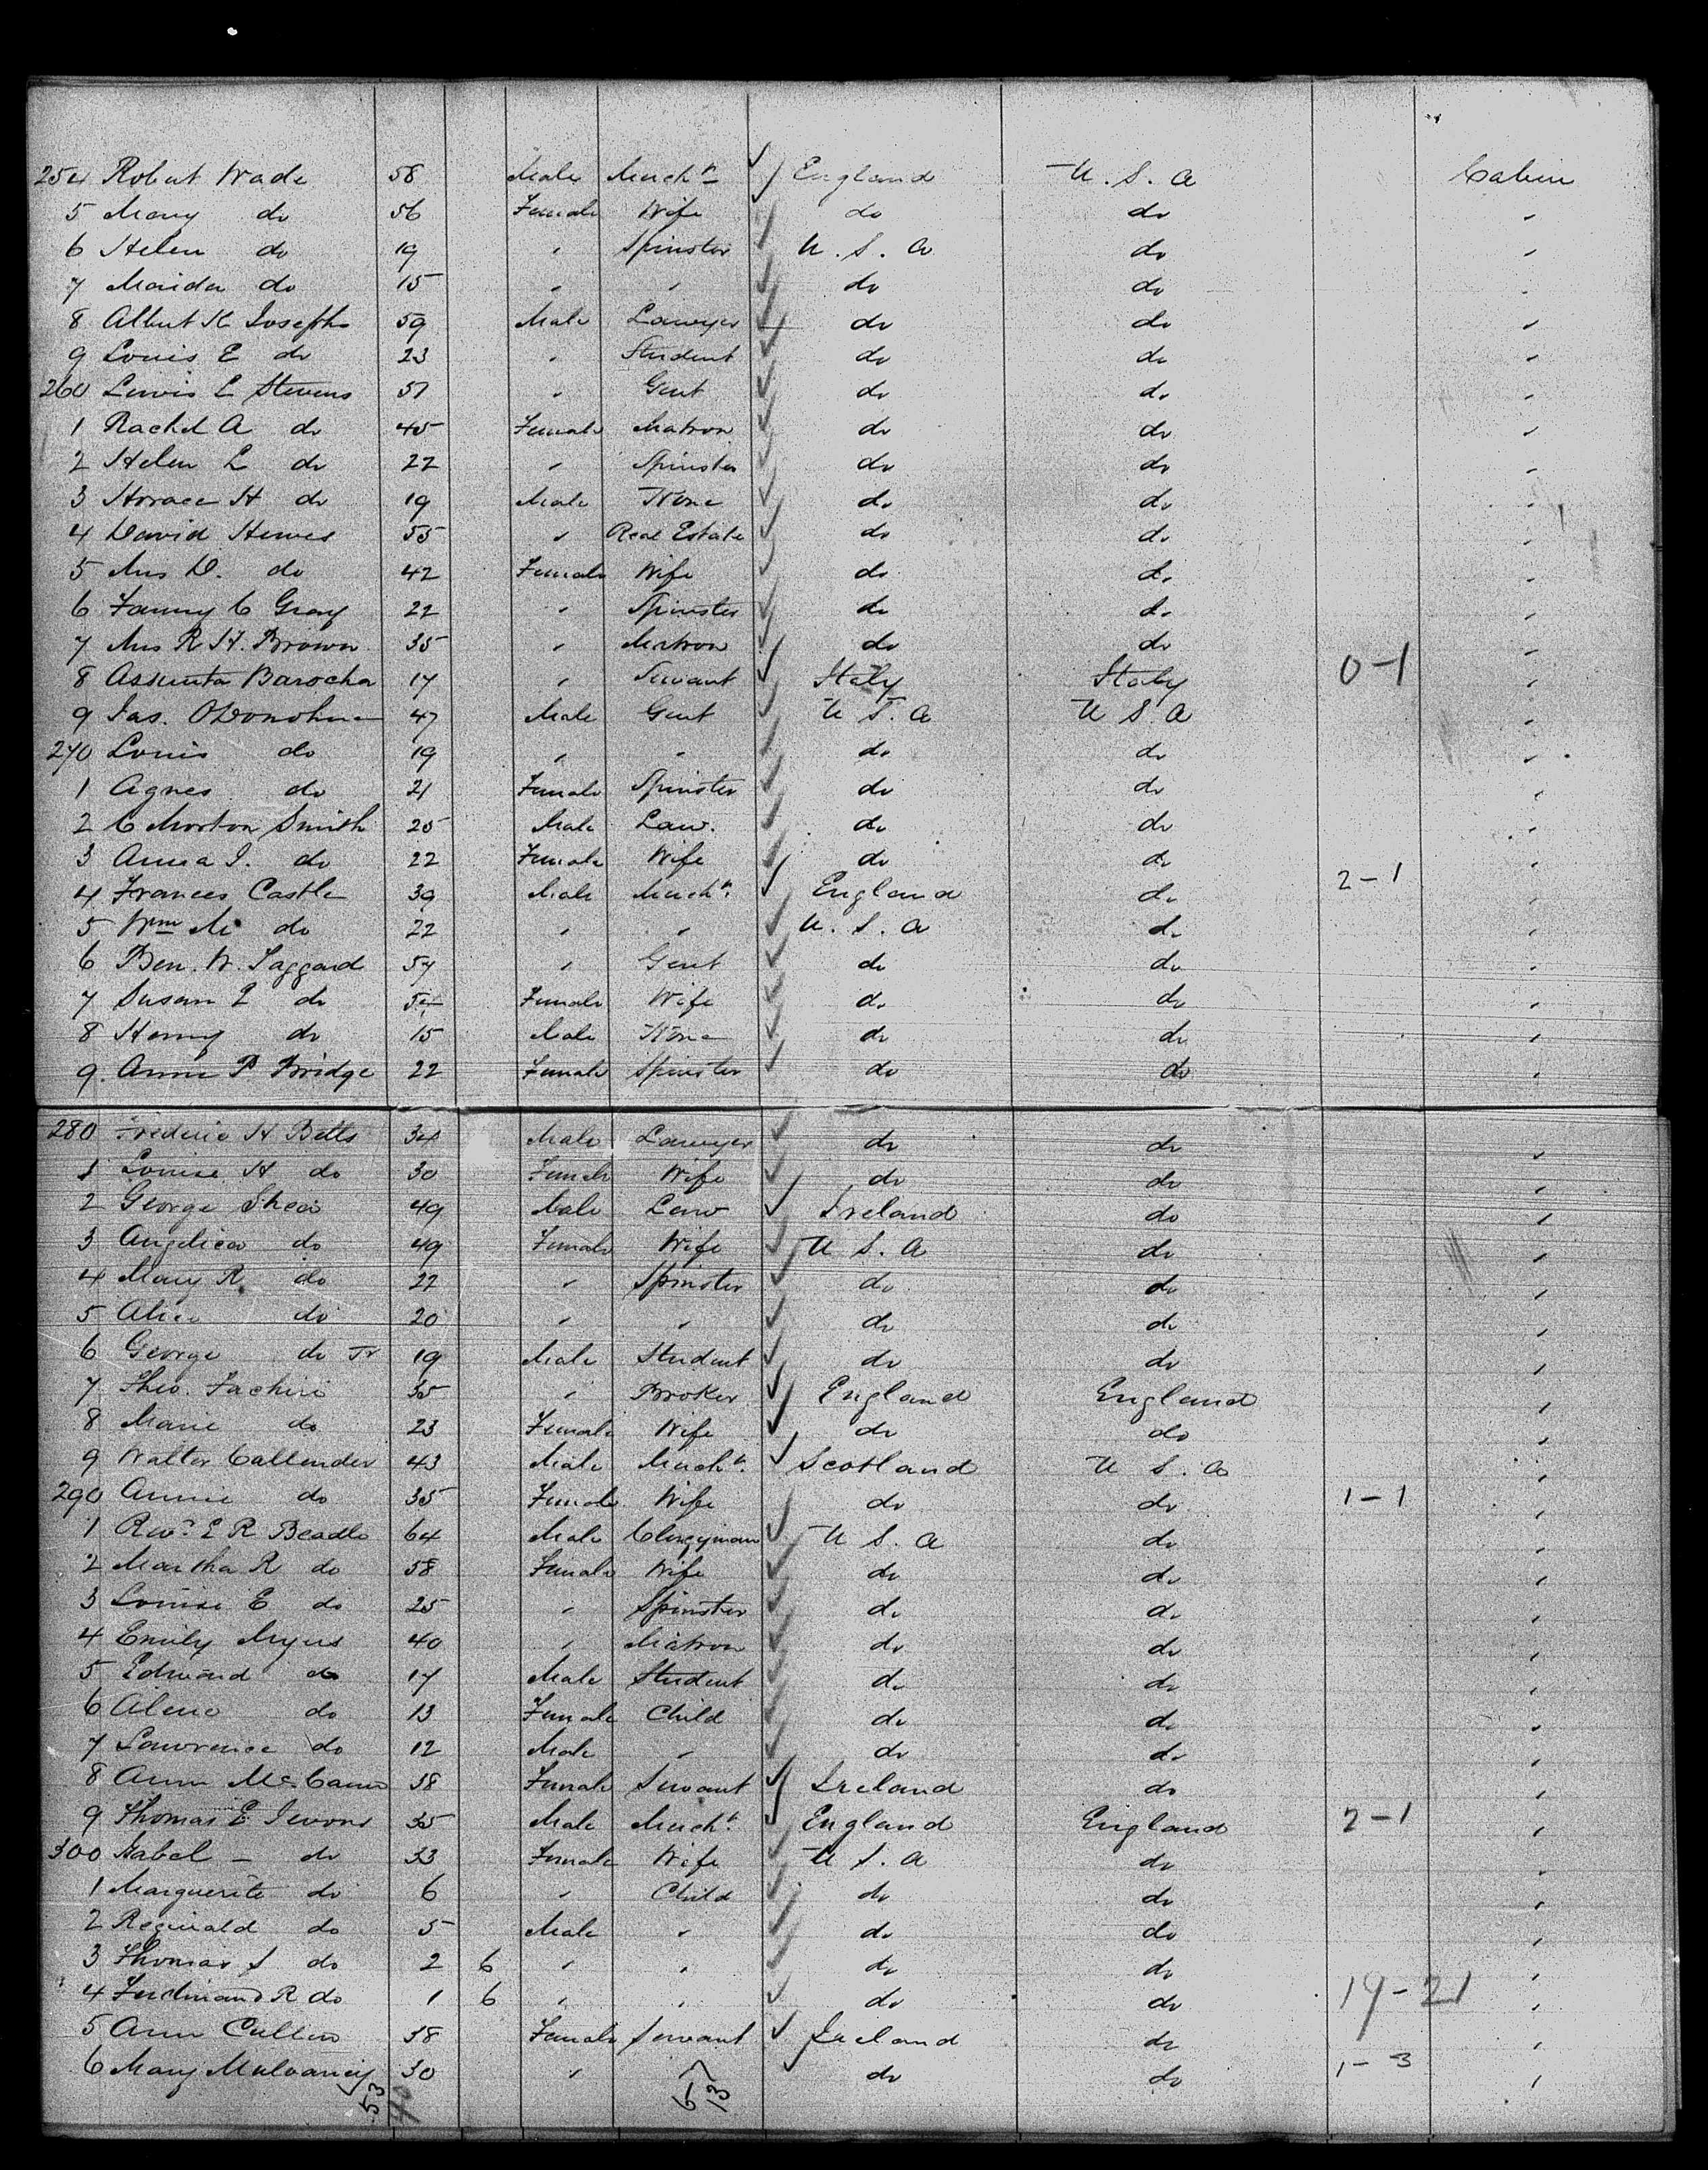 254 Robert Wade 58 Male Mercht England U. S. A Cabin
5 Mary do 56 Female Wife do do "
6 Helen do 19 " Spinster U. S. A do "
7 Maida do 15 " " do do "
8 Albert K Josephs 59 Male Lawyer do do "
9 Louis E do 23 " Student do do "
260 Lewis L Stevens 51 " Gent do do "
1 Rachel A do 45 Female Matron do do "
2 Helen L do 22 " Spinster do do "
3 Horace H do 19 Male None do do "
4 David Hewes 55 " Real Estate do do "
5 Mrs D. do 42 Female Wife do do "
6 Fanny C Gray 22 " Spinster do do "
7 Mrs R H. Brown 35 " Matron do do "
8 Assunta Barocha 17 " Servant Italy Italy 0-1 "
9 Jas. O'Donohue 47 Male Gent U S. A U S. A "
270 Louis do 19 " " do do "
1 Agnes do 21 Female Spinster do do "
2 C Morton Smith 25 Male Law. do do "
3 Anna I. do 22 Female Wife do do "
4 Frances Castle 39 Male Mercht. England do 2-1 "
5 Wm M do 22 " " U. S. A do "
6 Ben. W. Taggard 57 " Gent do do "
7 Susan E do Female Wife do do "
8 Henry do 15 Male None do do "
9. Annie P Bridge 22 Female Spinster do do "
280 Frederic H Betts 34 Male Lawyer do do "
1 Louise H do 30 Female Wife do do "
2 George Shea 49 Male Law Ireland do "
3 Angelica do 49 Female Wife U S. A do "
4 Mary R do 22 " Spinster do do "
5 Alice do 20 " " do do "
6 George do Jr 19 Male Student do do "
7 Theo. Fachiri 35 " Broker England England "
8 Marie do 23 Female Wife do do "
9 Walter Callender 43 Male Mercht. Scotland U S. A "
290 Annie do 35 Female Wife do do 1-1 "
1 Revd. E R Beadle 64 Male Clergyman U S. A do "
2 Martha R do 58 Female Wife do do "
3 Louise E do 25 " Spinster do do "
4 Emily Myers 40 " Matron do do "
5 Edward do 17 Male Student do do "
6 Alene do 13 Female Child do do "
7 Lawrence do 12 Male " do do "
8 Ann McCann 38 Female Servant Ireland do "
9 Thomas E Jevons 35 Male Mercht. England England 2-1 "
300 Isabel - do 33 Female Wife U S. A do "
1 Marguerite do 6 " Child do do "
2 Reginald do 5 Male " do do "
3 Thomas S do 2 6 " " do do "
4 Ferdinand R do 1 6 " " do do 19-21 "
5 Ann Cullen 38 Female Servant Ireland do "
6 Mary Mulvaney 30 " " do do 1-3 "
53 40